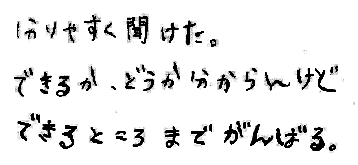 分りやすく聞けた。
できるか、どうか分からんけど
できるところまでがんばる。